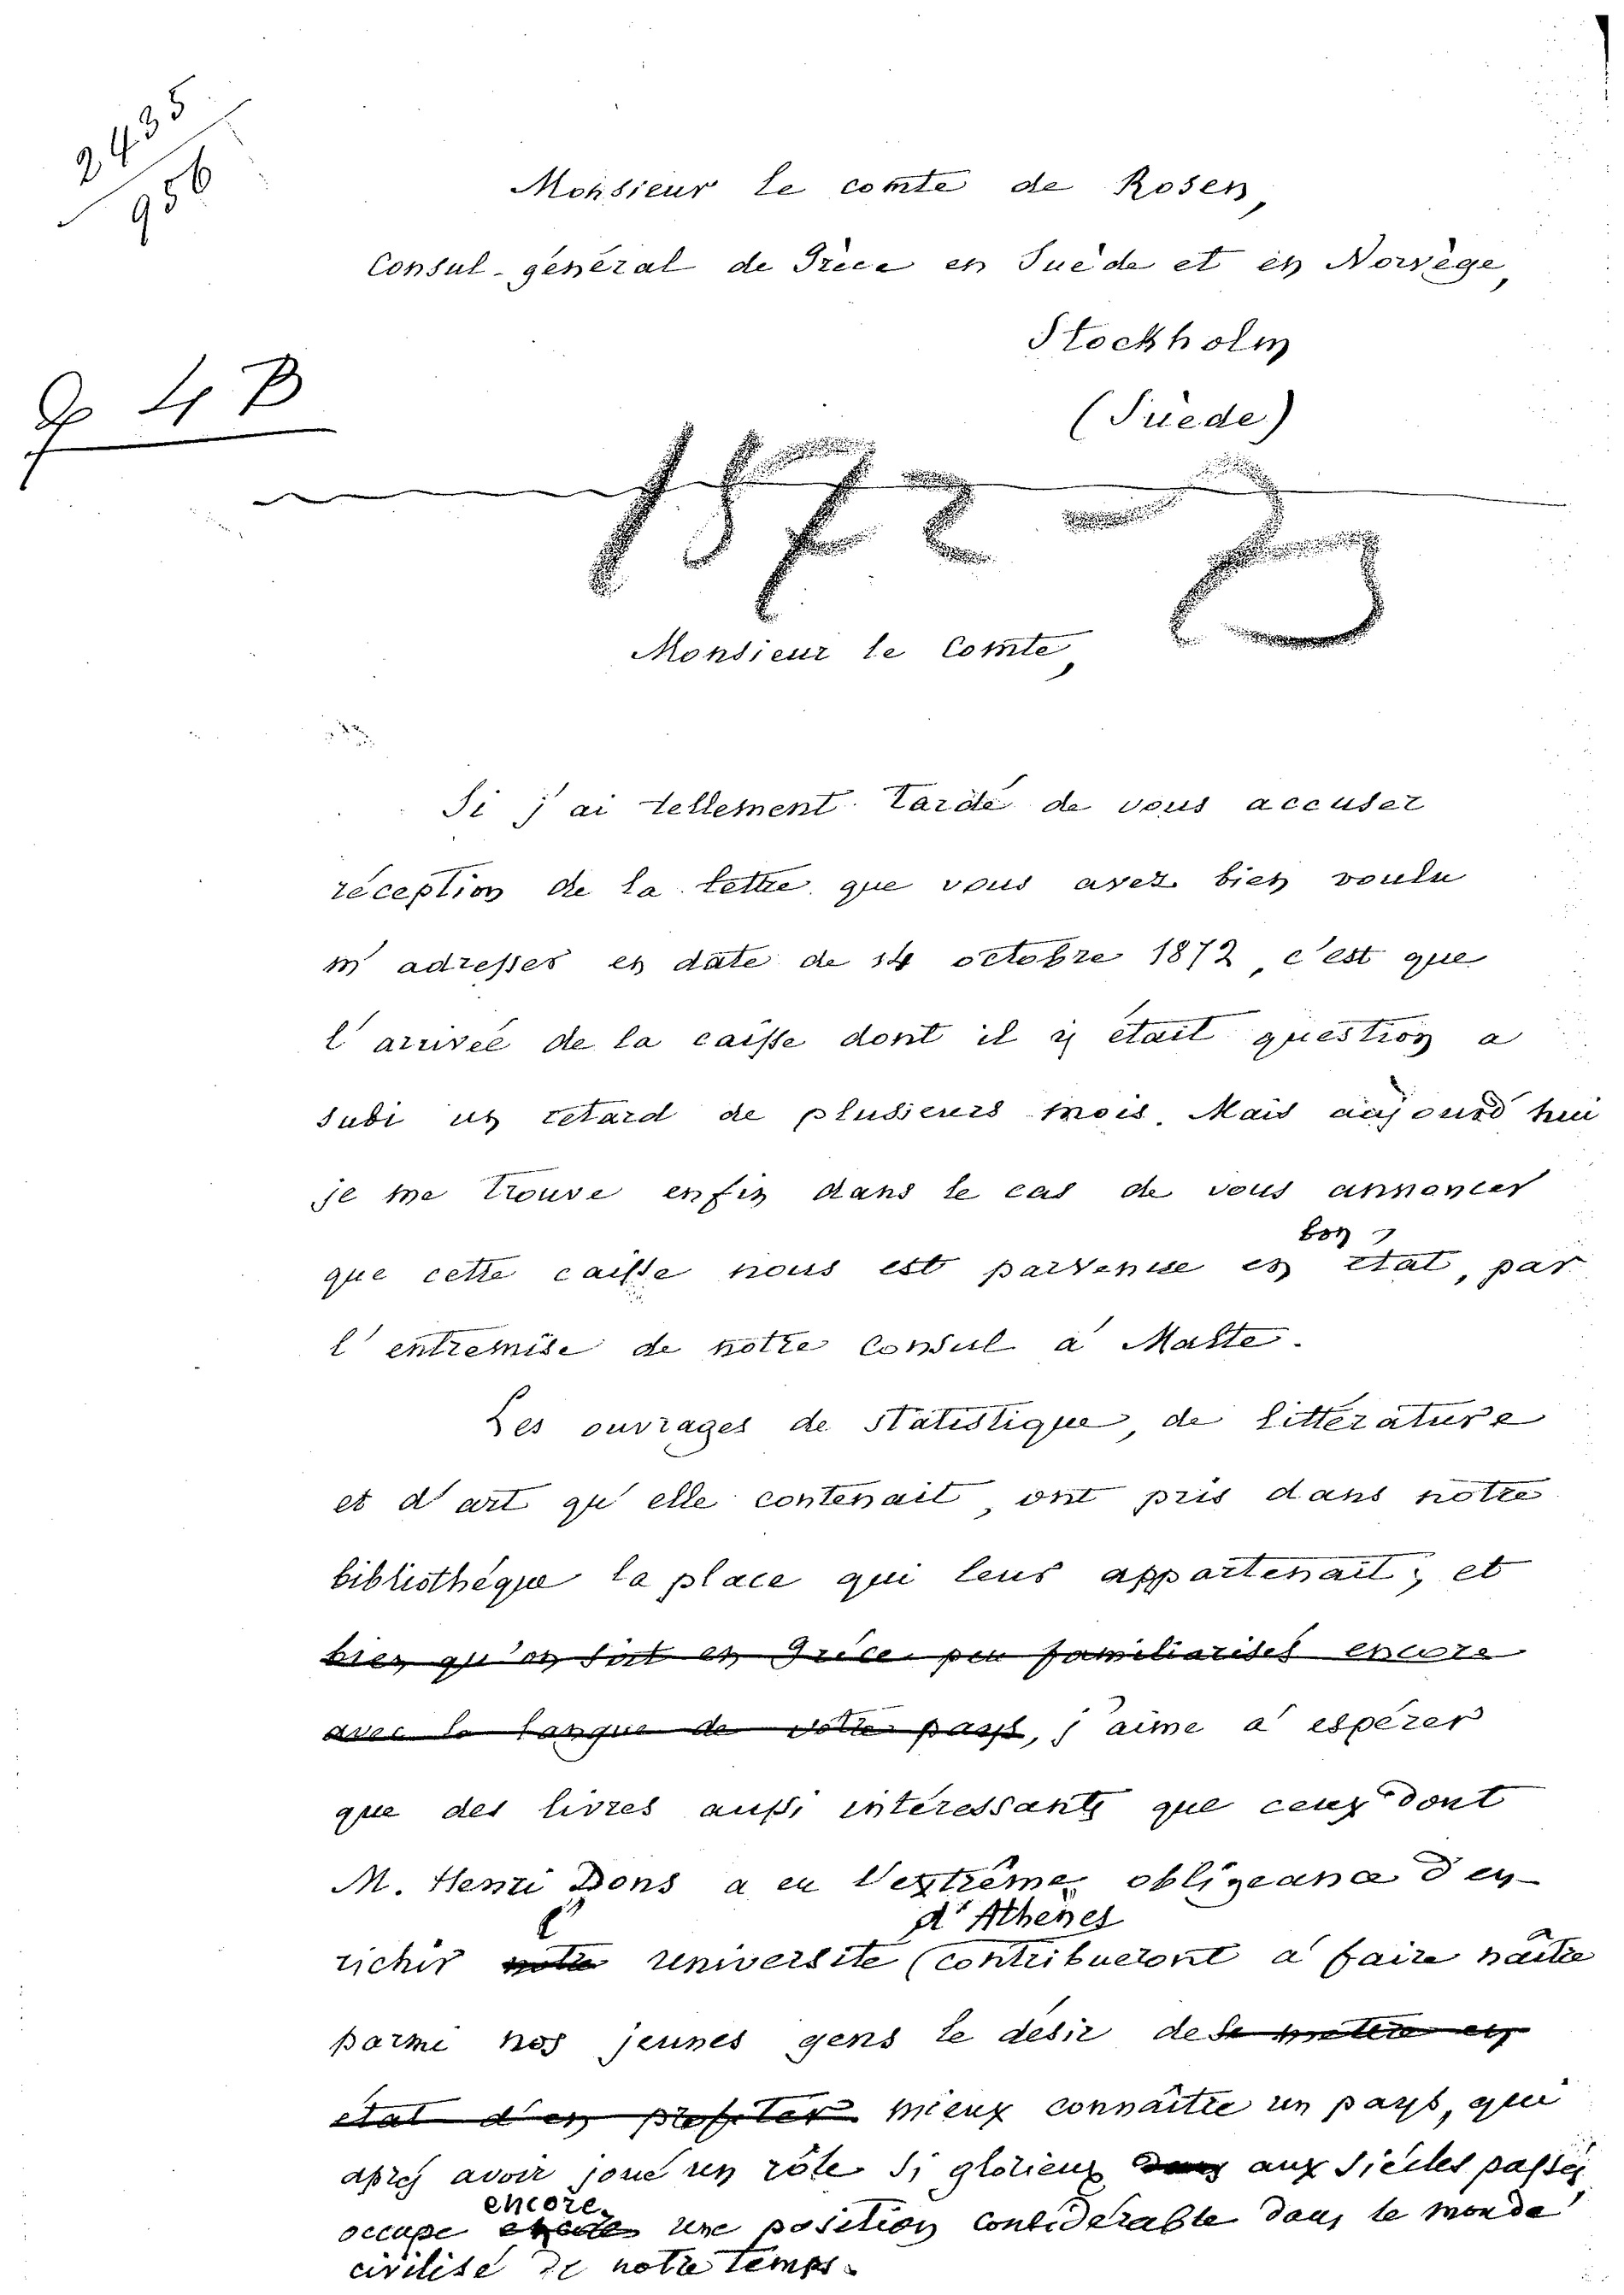 2435
956
Monsieur le comte de Rosen,
Consul-général de Grèce en Suède et en Norvège,
Stockholm
(Suède)
4 B
1872-
Monsieur le Comte,
Si j'ai tellement tardé de vous accuser
réception de la lettre que vous avez bien voulu
m'adresser en date de 14 octobre 1872, c'est que
l'arrivée de la caisse dont il y était question a
subi un retard de plusieurs mois. Mais aujourd'hui
je me trouve enfin dans le cas de vous annoncer
bon
que cette caisse nous est parvenue en état, par
l'entremise de notre Consul à Malte.
Les ouvrages de statistique, de littérature
et d'art qu'elle contenait, ont pris dans notre
bibliothèque la place qui leur appartenait; et
bien qu'on soit en Grèce peu familiarisés encore
avec la langue de votre pays, j'aime à espérer
que des livres aussi intéressants que ceux dont
M. Henri Dons a eu l'extrême obligeance d'en-
l' d'Athènes
richir notre université (contribueront à faire naître
parmi nos jeunes gens le désir de se mettre en
état d'en profiter mieux connaître un pays, qui
après avoir joué un rôle si glorieux dans aux siècles passés
encore
occupe une position considérable dans le monde
civilisé de notre temps.